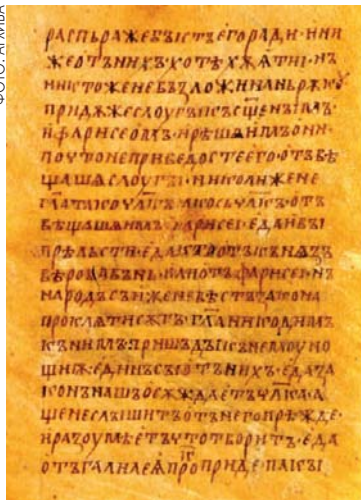 ФОТО: АРХИВА
распьражебꙑстъегоради·ини
жеотънихъхотѣхѫѩти·нъ
никтоженевъзложинаньрѫкꙑ
придѫжеслоугꙑкъсщ҃енъімъ
ифарисеомъ·ирѣшѧимъони·
почтонеприведостеего·отъвѣ
щашѧслоугꙑ·николижене
чл҃къꙗкосьчл҃къ·отъ
вѣщашѧимъфарисеі·едаивꙑ
прѣльсти·едактоотъкънѧзъ
вѣровавънь·илиотъфарисеі·нъ
народъсьиженевѣстъзакона
проклѧтисѫтъ·гл҃аникодимъ
кънимъпришьдъкънемоуно
щиѭ·единъсꙑотънихъ·едаза
конънашъосѫждаетъчл҃ка·а
щенеслꙑшитъотънегопрѣжде·
иразоумѣетъчтотворитъ·еда
отъгалилеѧпр҃о приде·пакꙑ